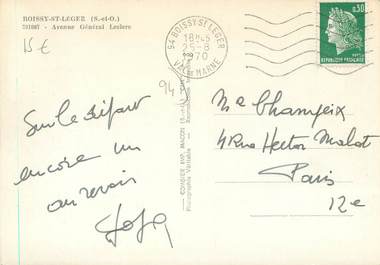 BOISSY-ST-LEGER (S.-et-O.)
791087 - Avenue Général Leclerc
15 €
94 BOISSY ST LEGER
18H45
25-8
1970
VAL DE MARNE
0,30
REPUBLIQUE FRANÇAISE
94
COMBIER IMP. MACON
Photographie Véritable
Sur le départ
encore un
au revoir
Mr Champeix
4 Rue Hector Malot
Paris
12e